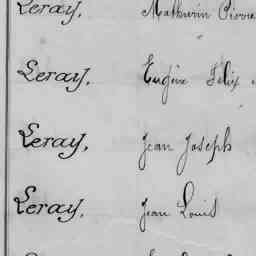 Leray, Mathurin Pierre
Leray, Eugène Félix
Leray, Jean Joseph
Leray, Jean Louis